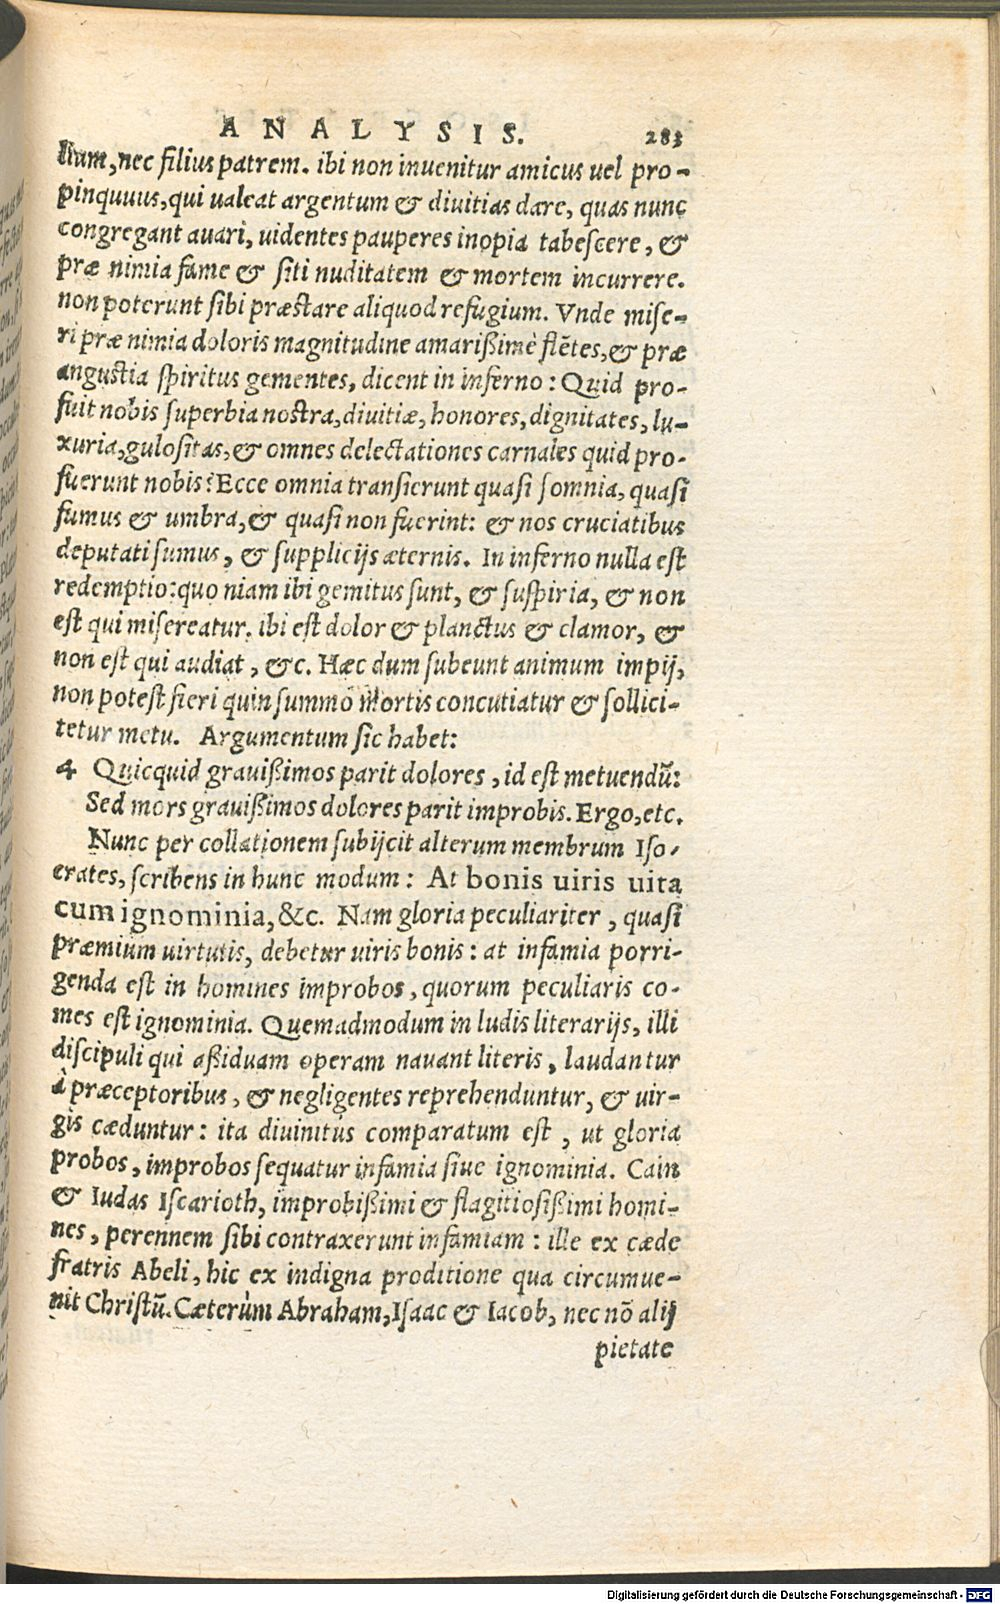 ANALYSIS. 283
lium, nec filius patrem. ibi non inuenitur amicus uel pro-
pinquuus, qui ualeat argentum & diuitias dare, quas nunc
congregant auari, uidentes pauperes inopia tabescere, &
præ nimia fame & siti nuditatem & mortem incurrere.
non poterunt sibi præstare aliquod refugium. Vnde mise-
ri præ nimia doloris magnitudine amarißimè flētes, & præ
angustia spiritus gementes, dicent in inferno: Quid pro-
fuit nobis superbia nostra, diuitiæ, honores, dignitates, lu-
xuria, gulositas, & omnes delectationes carnales quid pro-
fuerunt nobis? Ecce omnia transierunt quasi somnia, quasi
fumus & umbra, & quasi non fuerint: & nos cruciatibus
deputati sumus, & supplicijs æternis. In inferno nulla est
redemptio: quo niam ibi gemitus sunt, & suspiria, & non
est qui misereatur. ibi est dolor & planctus & clamor, &
non est qui audiat, &c. Hæc dum subeunt animum impij,
non potest fieri quin summō Mortis concutiatur & sollici-
tetur metu. Argumentum sic habet:
4 Quicquid grauißimos parit dolores, id est metuendū:
Sed mors grauißimos dolores parit improbis. Ergo, etc.
Nunc per collationem subijcit alterum membrum Iso-
crates, scribens in hunc modum: At bonis uiris uita
cum ignominia, &c. Nam gloria peculiariter, quasi
præmium uirtutis, debetur uiris bonis: at infamia porri-
genda est in homines improbos, quorum peculiaris co-
mes est ignominia. Quemadmodum in ludis literarijs, illi
discipuli qui aßiduam operam nauant literis, laudantur
à præceptoribus, & negligentes reprehenduntur, & uir-
gis cæduntur: ita diuinitus comparatum est, ut gloria
probos, improbos sequatur infamia siue ignominia. Cain
& Iudas Iscarioth, improbißimi & flagitiosißimi homi-
nes, perennem sibi contraxerunt infamiam: ille ex cæde
fratris Abeli, hic ex indigna proditione qua circumue-
nit Christū. Cæterùm Abraham, Isaac & Iacob, nec nō alij
pietate
Digitalisierung gefördert durch die Deutsche Forschungsgemeinschaft - DFG